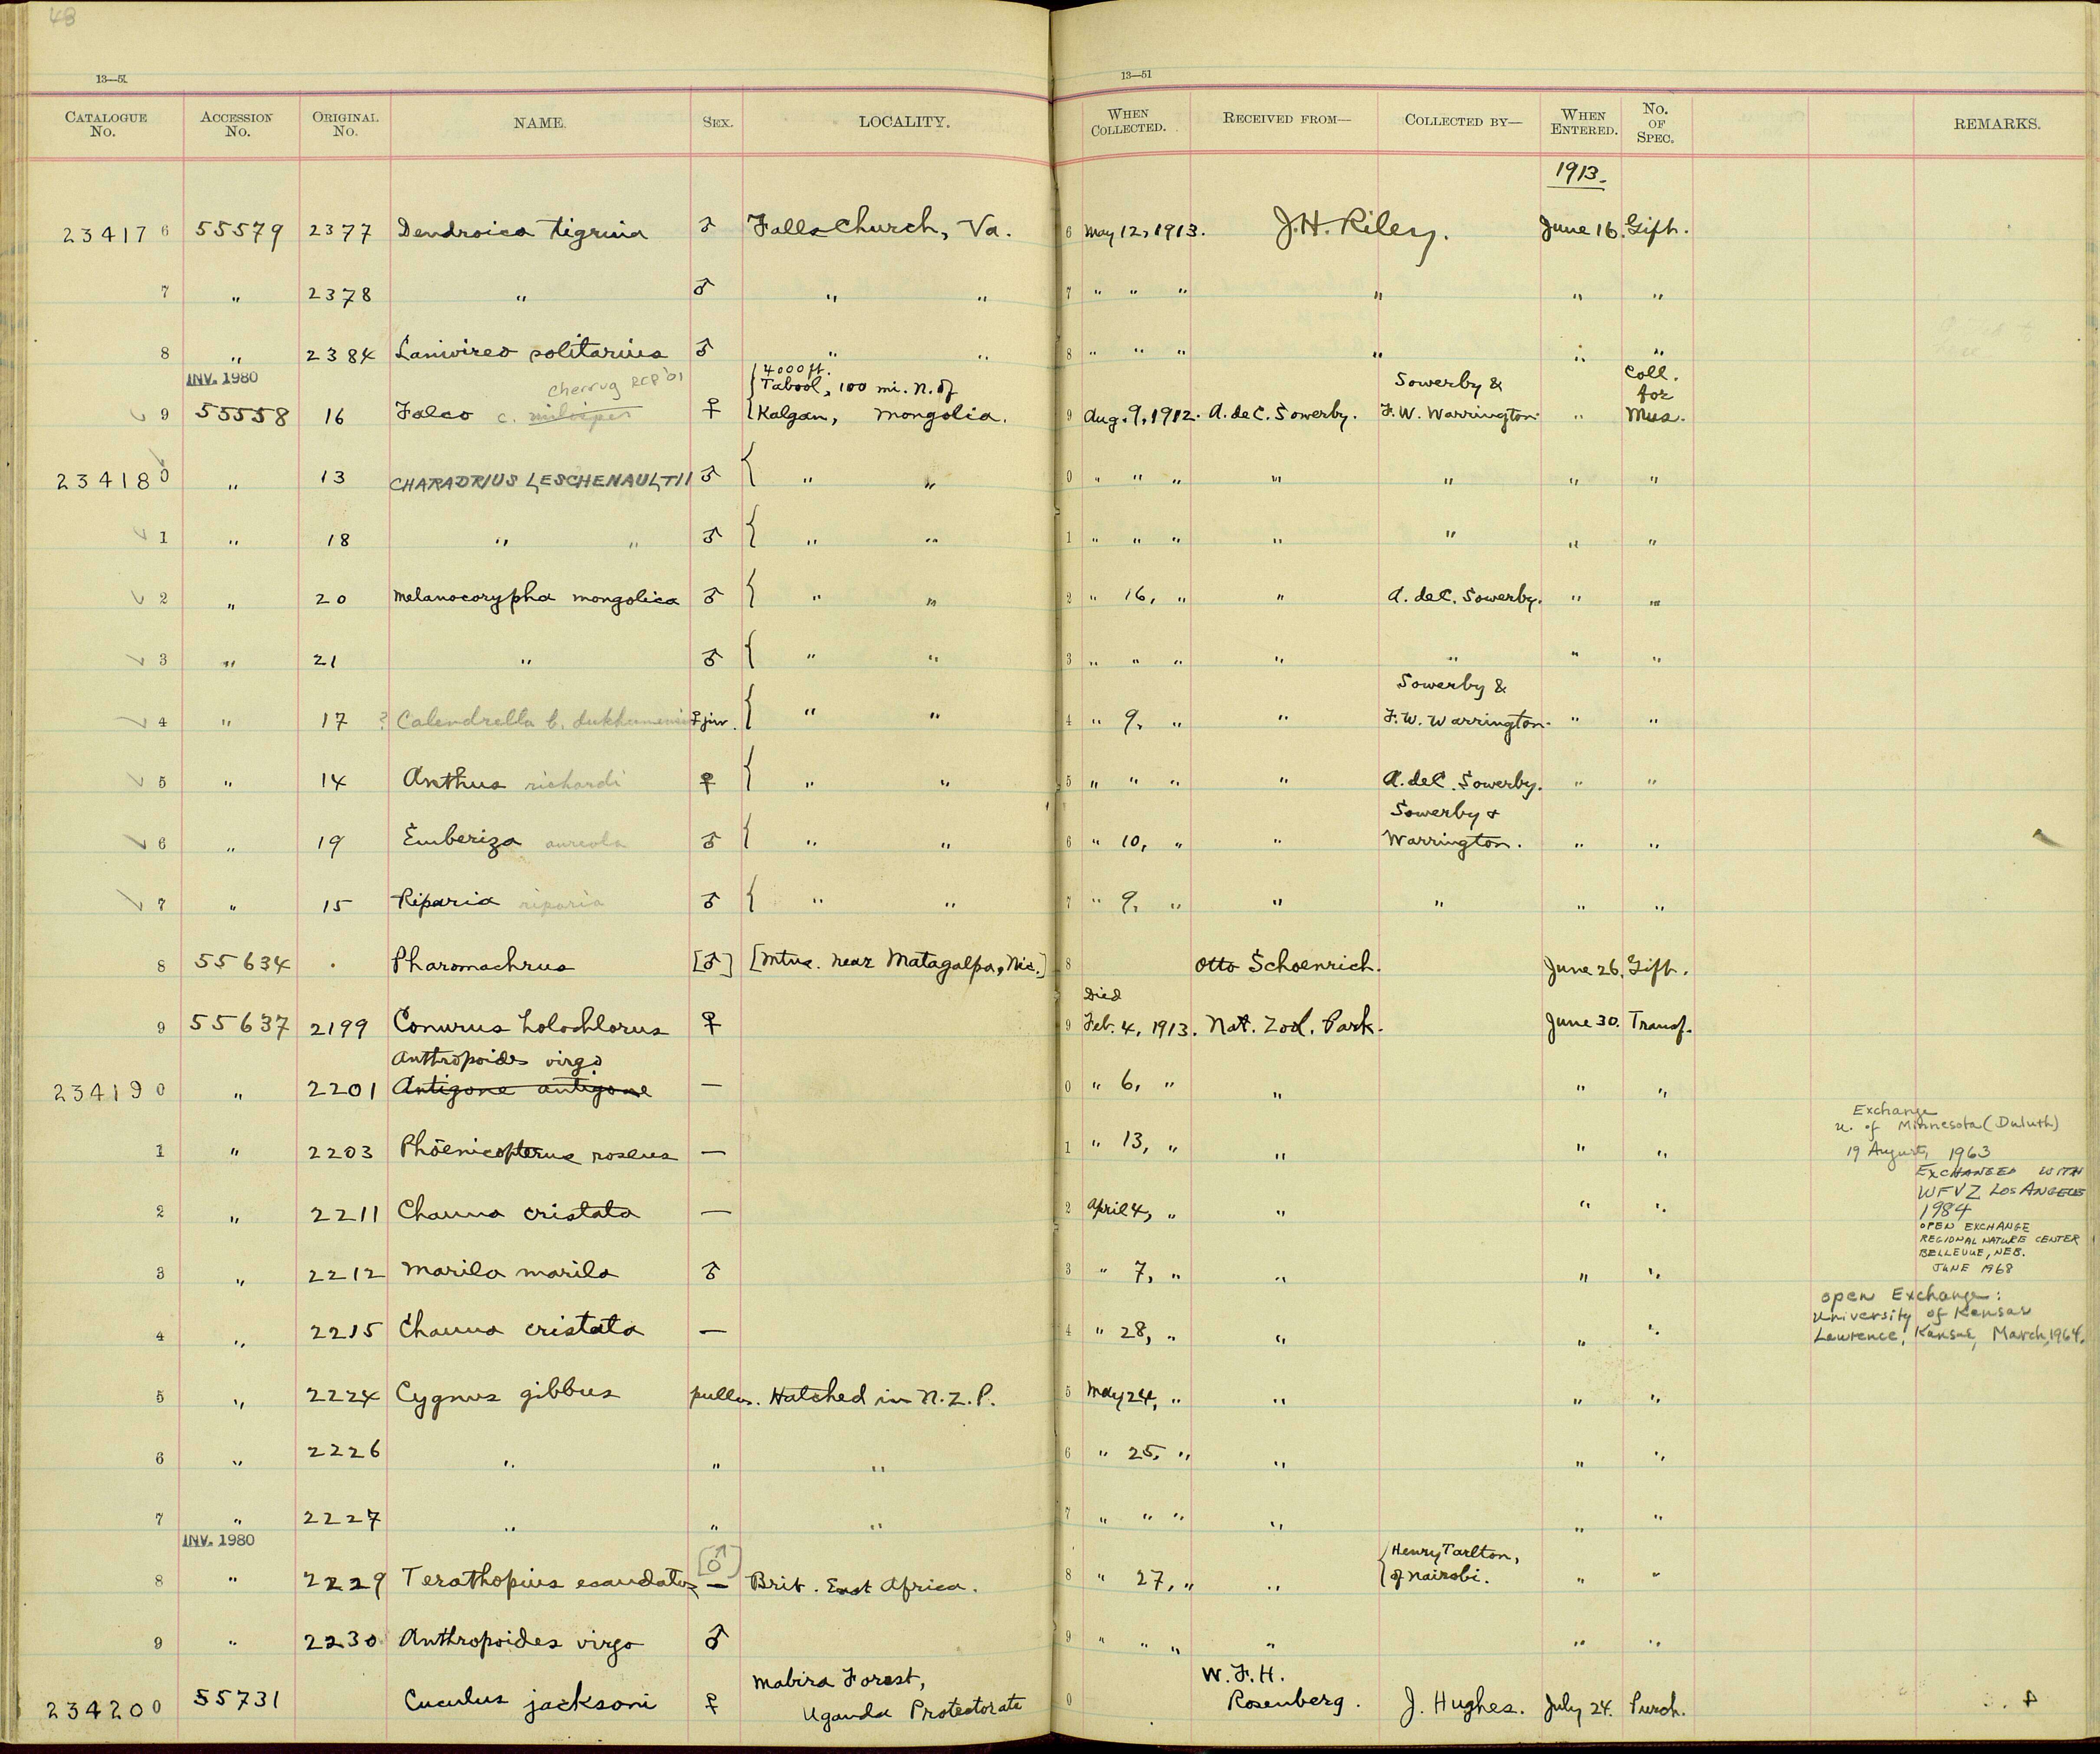 48
13—51
13—51
CATALOGUE No. ACCESSION No. ORIGINAL No. NAME. SEX. LOCALITY. WHEN COLLECTED. RECEIVED FROM— COLLECTED BY— WHEN ENTERED. No. OF SPEC. REMARKS.
1913.
234176 55579 2377 Dendroica tigrina ♂ Falls Church, Va. 6 May 12, 1913. J.H. Riley. June 16. Gift.
7 " 2378 " ♂ " " 7 " " " " " "
8 " 2384 Lanivireo solitarius ♂ " " 8 " " " " " "
INV. 1980 cherrug RCB '01 4000 ft. Coll.
Tabool, 100 mi. N. of Sowerby & for
9 55558 16 Falco c. milvipes ♀ Kalgan, Mongolia. 9 Aug. 9, 1912. A. de C. Sowerby. F.W. Warrington. " Mus.
234180 " 13 CHARADRIUS LESCHENAULTII ♂ " " 0 " " " " " " "
1 " 18 " " ♂ " " 1 " " " " " " "
2 " 20 Melanocorypha mongolica ♂ " " 2 " 16, " " A. de C. Sowerby. " "
3 " 21 " ♂ " " 3 " " " " " " "
Sowerby &
4 " 17 ? Calendrella b. dukhunensis ♀ juv. " " 4 " 9, " " F. W. Warrington. " "
5 " 14 Anthus richardi ♀ " " 5 " " " " A. de C. Sowerby. " "
Sowerby &
6 " 19 Emberiza aureola ♂ " " 6 " 10, " " Warrington. " "
7 " 15 Riparia riparia ♂ " " 7 " 9, " " " " "
8 55634 Pharomachrus [♂] [Mtns. near Matagalpa, Nic.] 8 Otto Schoenrich. June 26. Gift.
Died
9 55637 2199 Conurus holochlorus ♀ 9 Feb. 4, 1913. Nat. Zool. Park. June 30. Transf.
Anthropoides virgo
234190 " 2201 Antigone antigone — 0 " 6, " " " "
Exchange
U. of Minnesota (Duluth)
1 " 2203 Phoenicopterus roseus — 1 " 13, " " " " 19 August, 1963
EXCHANGED WITH
WFVZ LOS ANGELES
2 " 2211 Chauna cristata — 2 April 4, " " " " 1984
OPEN EXCHANGE
REGIONAL NATURE CENTER
BELLEVUE, NEB.
3 " 2212 Marila marila ♂ 3 " 7, " " " " JUNE 1968
open Exchange:
University of Kansas
4 " 2215 Chauna cristata — 4 " 28, " " " " Lawrence, Kansas, March, 1964.
5 " 2224 Cygnus gibbus pullus. Hatched in N.Z.P. 5 May 24, " " " "
6 " 2226 " " " 6 " 25, " " " "
7 " 2227 " " " 7 " " " " " "
INV. 1980 [♂] Henry Tarlton,
8 " 2229 Terathopius ecaudatus — Brit. East Africa. 8 " 27, " " of Nairobi. " "
9 " 2230 Anthropoides virgo ♂ 9 " " " " " "
Mabira Forest, W. F. H.
234200 55731 Cuculus jacksoni ♀ Uganda Protectorate 0 Rosenberg. J. Hughes. July 24. Purch.